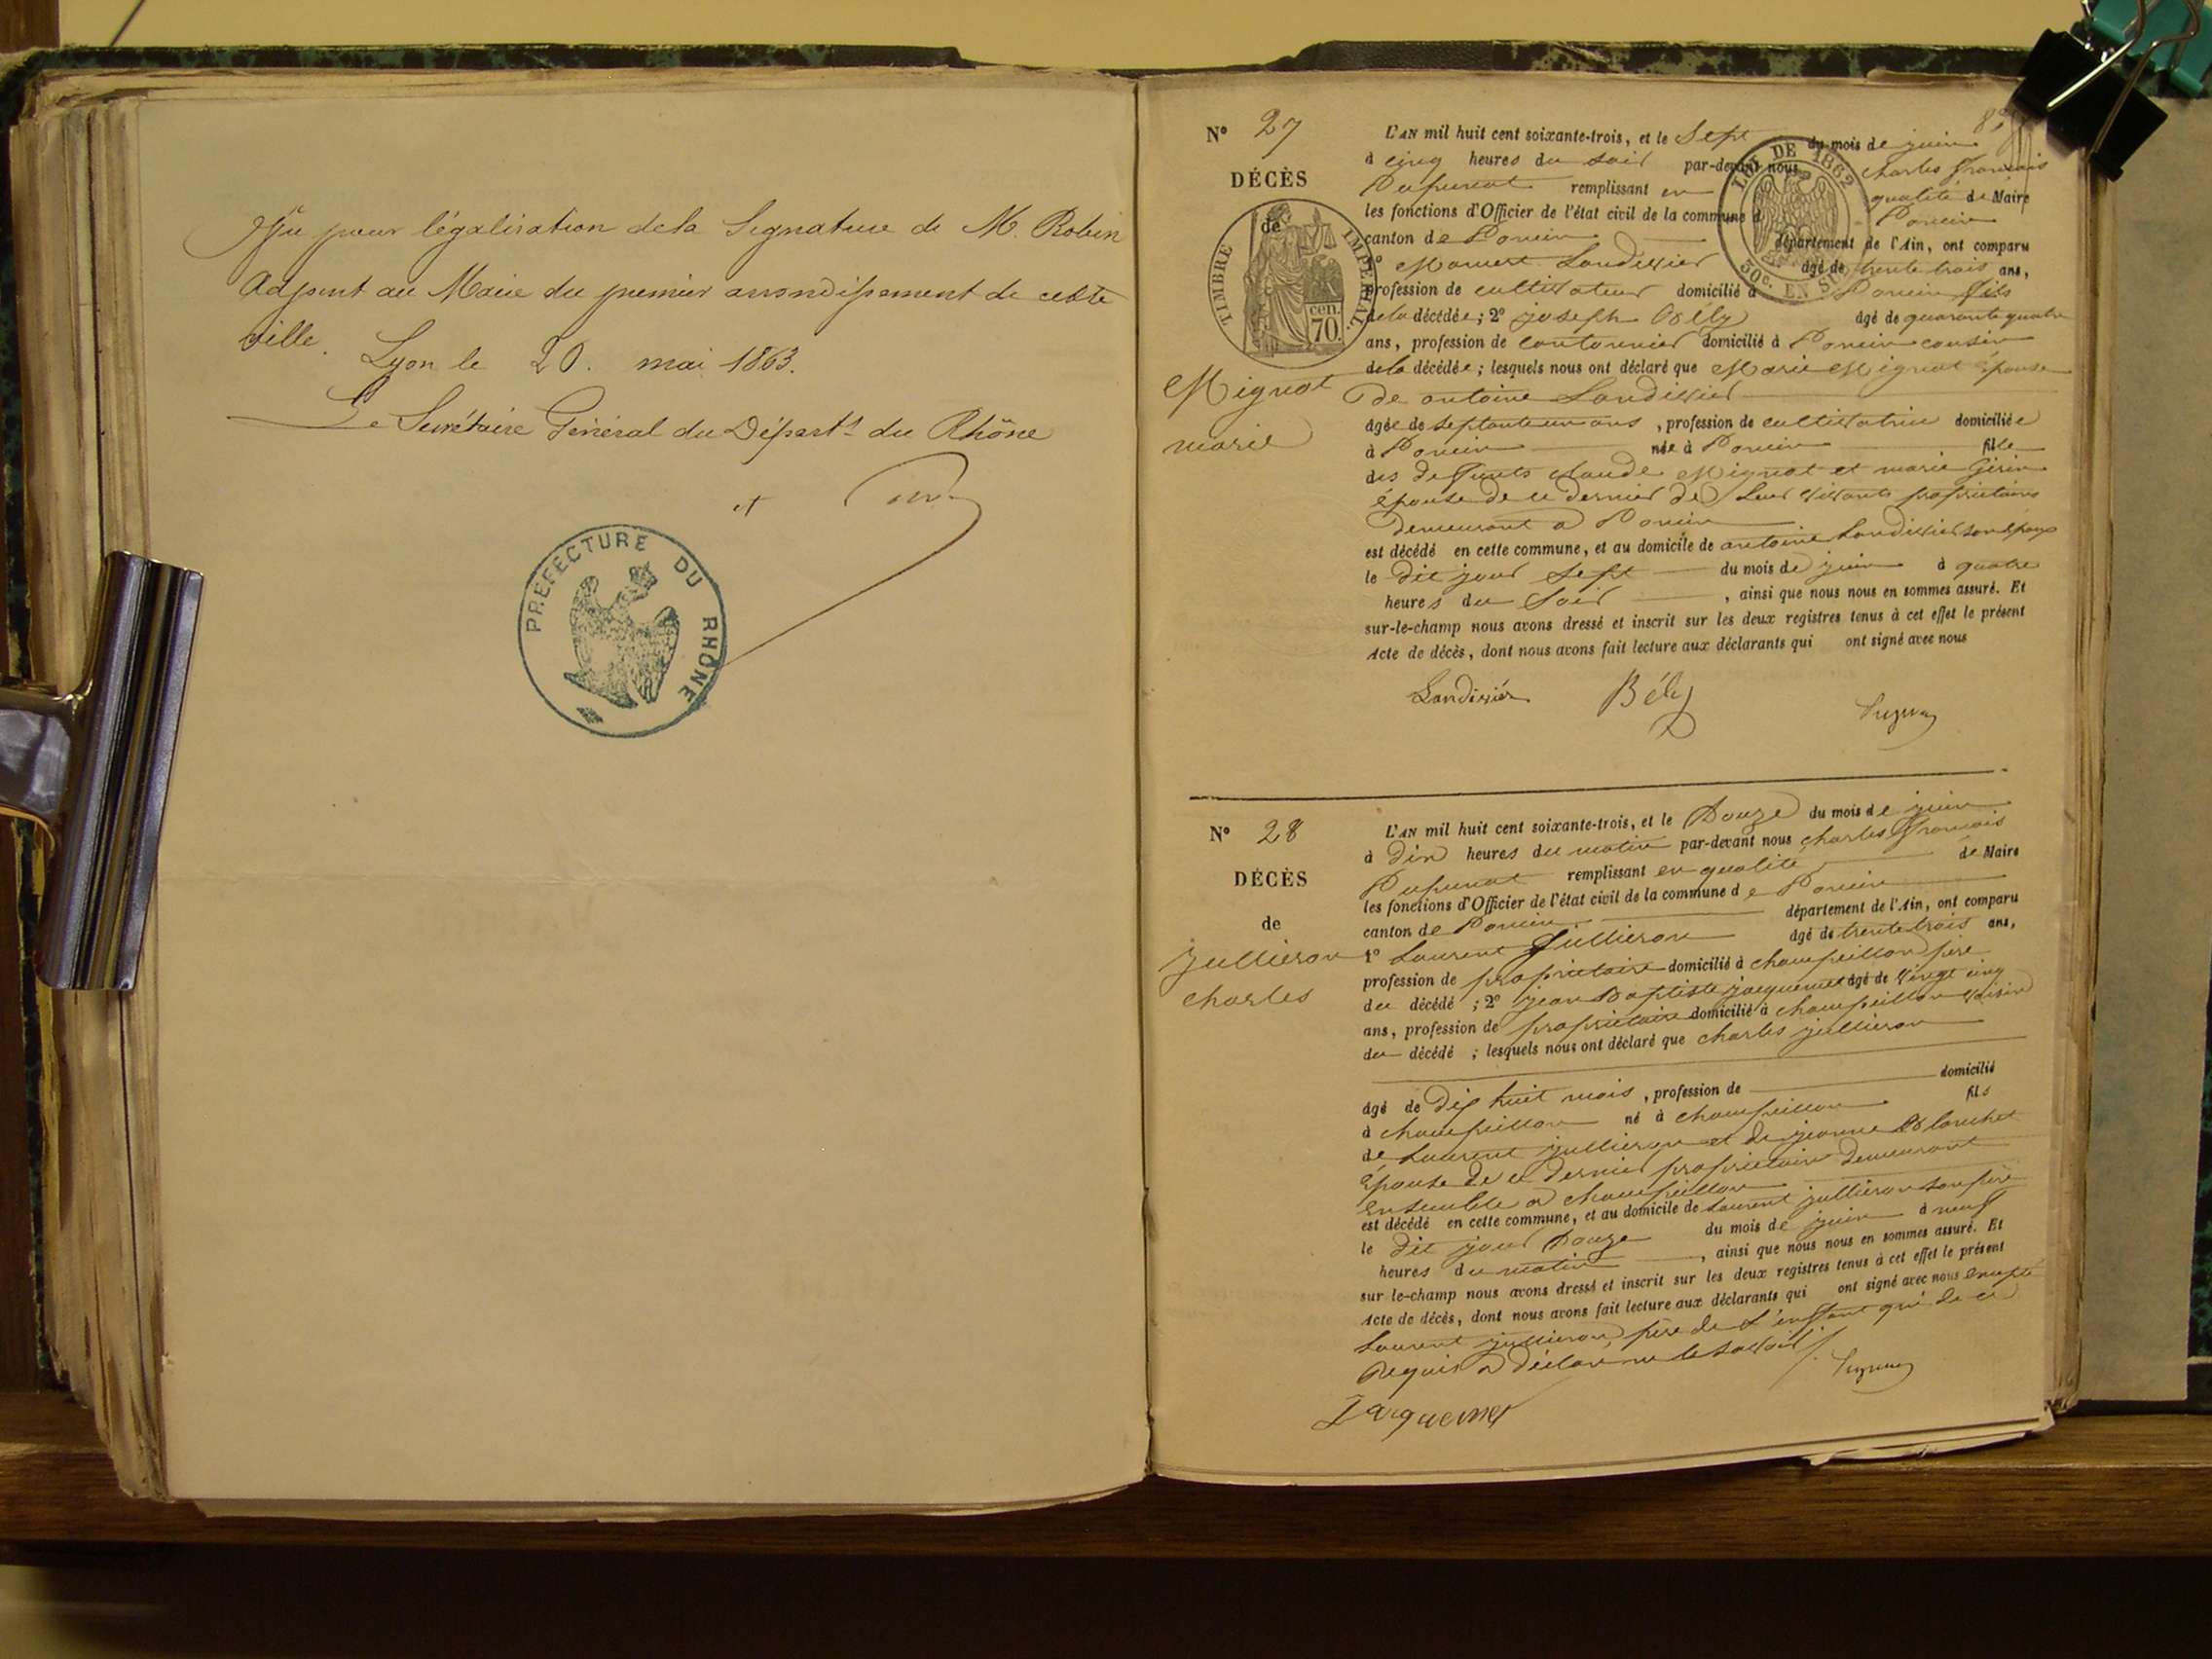 Vu pour légalisation de la Signature de M. Robin
adjoint au Maire du premier arrondissement de cette
ville.
Lyon le 20. mai 1863.
Le Secrétaire Général du Départt du Rhône
PRÉFECTURE DU RHÔNE
N° 27
DÉCÈS
de
TIMBRE IMPÉRIAL
70 cen.
Mignot
marie
LOI DE 1862
30c. EN SUS
L'AN mil huit cent soixante-trois, et le Sept du mois de juin
à cinq heures du soir par-devant nous charles françois
remplissant en qualité de Maire
les fonctions d'Officier de l'état civil de la commune de Poncin
canton de Poncin département de l'Ain, ont comparu
Landivier âgé de trente trois ans,
profession de cultivateur domicilié à Poncin fils
de la décédée; 2° joseph Bélly âgé de quarante quatre
ans, profession de cantonnier domicilié à Poncin cousin
de la décédée; lesquels nous ont déclaré que Marie Mignot épouse
de antoine Landivier
âgée de septante un ans, profession de cultivatrice domiciliée
à Poncin née à Poncin fille
des defunts claude Mignot et marie Girin
épouse de ce dernier de leur vivants propriétaires
demeurant a Poncin
est décédé en cette commune, et au domicile de antoine Landivier son époux
le dit jour sept du mois de juin à quatre
heures du soir, ainsi que nous nous en sommes assuré. Et
sur-le-champ nous avons dressé et inscrit sur les deux registres tenus à cet effet le présent
Acte de décès, dont nous avons fait lecture aux déclarants qui ont signé avec nous
Landivier Bély
N° 28
DÉCÈS
de
jullieron
charles
L'AN mil huit cent soixante-trois, et le Douze du mois de juin
à dix heures du matin par-devant nous charles françois
remplissant en qualité de Maire
les fonctions d'Officier de l'état civil de la commune de Poncin
canton de Poncin département de l'Ain, ont comparu
1° Laurent Jullieron âgé de trente trois ans,
profession de propriétaire domicilié à champeillon père
du décédé; 2° jean Baptiste jacquemet âgé de vingt cinq
ans, profession de propriétaire domicilié à champeillon voisin
du décédé; lesquels nous ont déclaré que charles jullieron
âgé de dix huit mois, profession de domicilié
à champeillon né à champeillon fils
de Laurent jullieron et de jeanne Blanchet
épouse de ce dernier propriétaire demeurant
ensemble a champeillon
est décédé en cette commune, et au domicile de Laurent jullieron son père
le dit jour Douze du mois de juin à neuf
heures du matin, ainsi que nous nous en sommes assuré. Et
sur-le-champ nous avons dressé et inscrit sur les deux registres tenus à cet effet le présent
Acte de décès, dont nous avons fait lecture aux déclarants qui ont signé avec nous excepté
Laurent jullieron, père de L'enfant qui de ce
requis a déclaré ne le savoir
Jacquemet